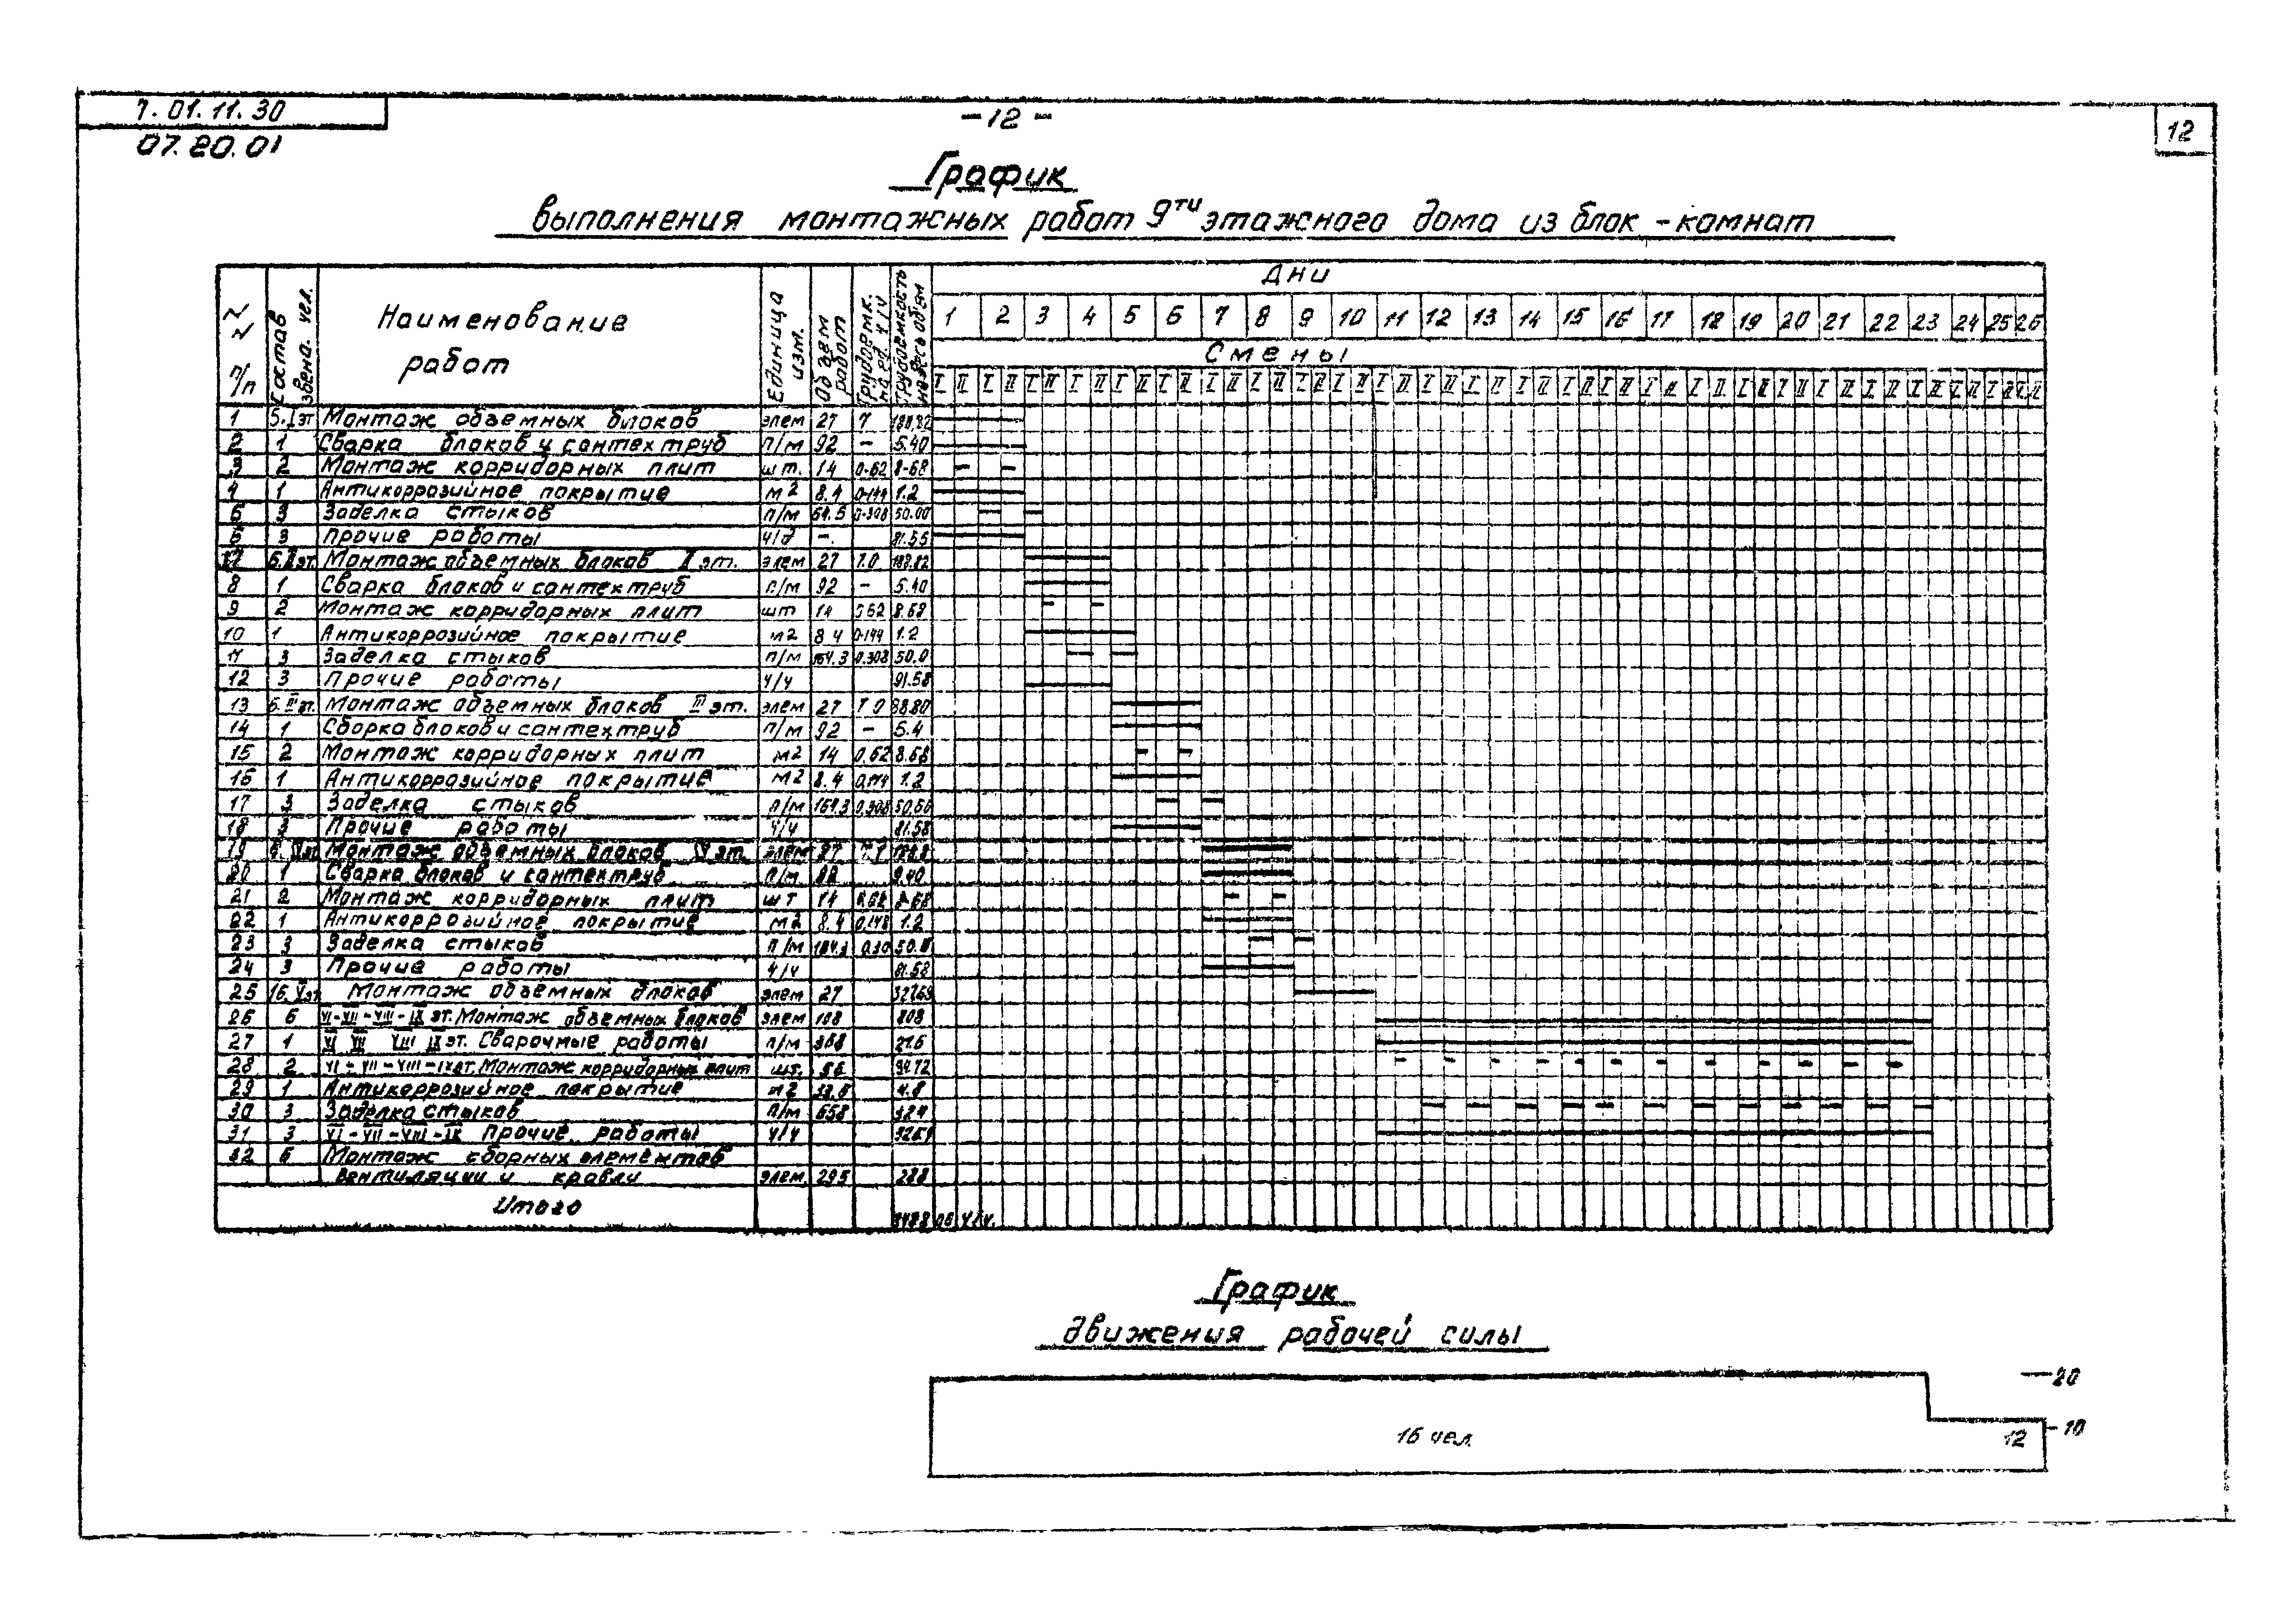 7.01.11.30
- 12 -
12
07.20.01
График
выполнения монтажных работ 9ти этажного дома из блок-комнат
№№ п/п Состав звена. чел. Наименование работ Единица изм. Объем работ Трудоемк. на ед. ч/ч Трудоемкость на весь объем Дни
1 2 3 4 5 6 7 8 9 10 11 12 13 14 15 16 17 18 19 20 21 22 23 24 25 26
Смены
I II I II I II I II I II I II I II I II I II I II I II I II I II I II I II I II I II I II I II I II I II I II I II I II I II I II
1 5. I эт Монтаж объемных блоков элем 27 7
2 1 Сварка блоков и сантехтруб п/м 92 - 5.40
3 2 Монтаж корридорных плит шт. 14 0.62 8.68
4 1 Антикоррозийное покрытие м2 8.4 0.144 1.2
3 Заделка стыков п/м 50.00
3 Прочие работы
Монтаж объемных блоков II эт. элем 27 7.0
8 1 Сварка блоков и сантехтруб п/м 92 - 5.40
9 2 Монтаж корридорных плит шт 14 0.62 8.68
10 1 Антикоррозийное покрытие м2 8.4 0.144 1.2
11 3 Заделка стыков п/м 164.3 0.308 50.0
12 3 Прочие работы ч/ч 91.58
13 6. III эт. Монтаж объемных блоков III эт. элем 27 7.0
14 1 Сборка блоков и сантехтруб п/м 92 - 5.4
15 2 Монтаж корридорных плит м2 14 0.62 8.68
16 1 Антикоррозийное покрытие м2 8.4 1.2
17 3 Заделка стыков п/м 164.3 0.308
18 3 Прочие работы ч/ч 81.58
19 Монтаж объемных блоков IV эт. элем
20 1 Сварка блоков и сантехтруб п/м
21 2 Монтаж корридорных плит шт 14
22 1 Антикоррозийное покрытие м2 8.4 0.148 1.2
23 3 Заделка стыков п/м 0.30
24 3 Прочие работы ч/ч 81.58
25 16. V эт Монтаж объемных блоков элем 27
26 6 VI-VII-VIII-IX эт. Монтаж объемных блоков элем 108
27 1 VI VII VIII IX эт. Сварочные работы п/м 368 21.6
28 2 VI-VII-VIII-IX эт. Монтаж корридорных плит шт. 56 34.72
29 1 Антикоррозийное покрытие м2 33.6 4.8
30 3 Заделка стыков п/м 658
31 3 VI-VII-VIII-IX Прочие работы ч/ч
32 6 Монтаж сборных элементов
вентиляции и кровли элем 295 288
Итого
График
движения рабочей силы
20
10
16 чел.
12